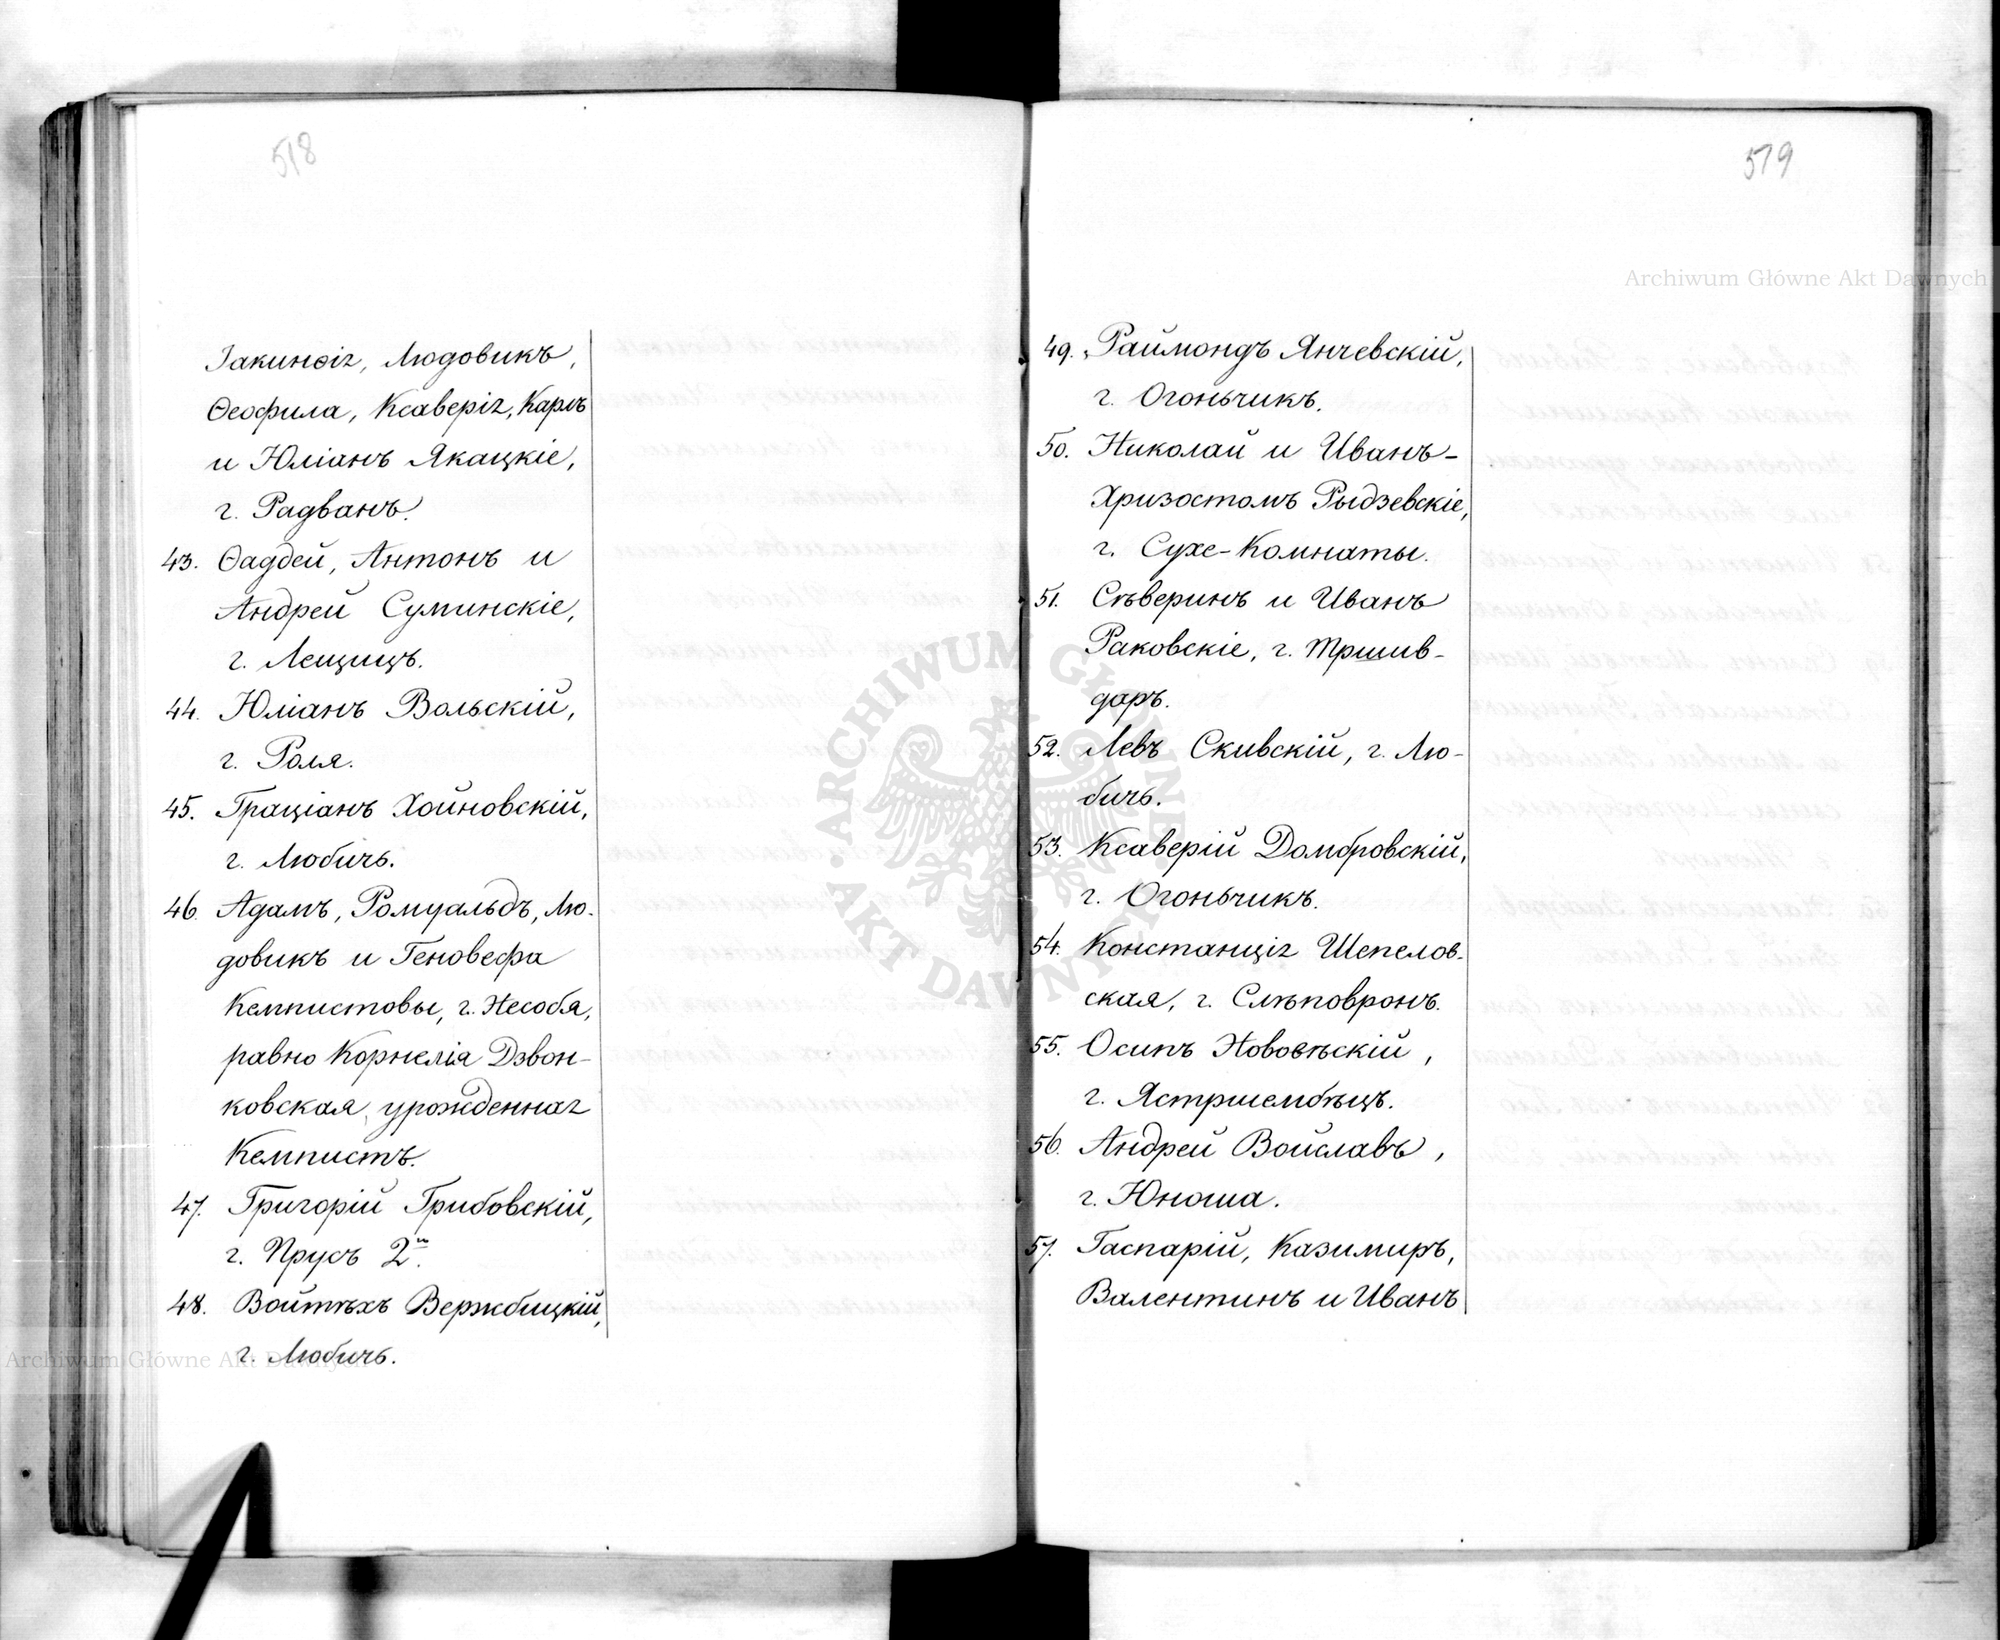 518
Іакинѳія, Людовикъ,
Ѳеофила, Ксаверія, Карлъ
и Юліанъ Якацкіе,
г. Радванъ.
43. Ѳаддей, Антонъ и
Андрей Суминскіе,
г. Лещицъ.
44. Юліанъ Вольскій,
г. Роля.
45. Граціанъ Хойновскій,
г. Любичъ.
46. Адамъ, Ромуальдъ, Лю-
довикъ и Геновефа
Кемпистовы, г. Несобя,
равно Корнелія Дзвон-
ковская, урожденная
Кемпистъ.
47. Григорій Грибовскій,
г. Прусъ 2й.
48. Войтѣхъ Вержбицкій,
г. Любичъ.
519
49. Раймондъ Янчевскій,
г. Огончикъ.
50. Николай и Иванъ-
Хризостомъ Рыдзевскіе,
г. Сухе-Комнаты.
51. Сѣверинъ и Иванъ
Раковскіе, г. Тршив-
даръ.
52. Левъ Скивскій, г. Лю-
бичъ.
53. Ксаверій Домбровскій,
г. Огончикъ.
54. Констанція Шепелов-
ская, г. Слѣповронъ.
55. Осипъ Нововѣскій,
г. Ястршембѣцъ.
56. Андрей Войславъ,
г. Юноша.
57. Гаспарій, Казимиръ,
Валентинъ и Иванъ
Archiwum Główne Akt Dawnych
Archiwum Główne Akt Dawnych
ARCHIWUM GŁÓWNE AKT DAWNYCH